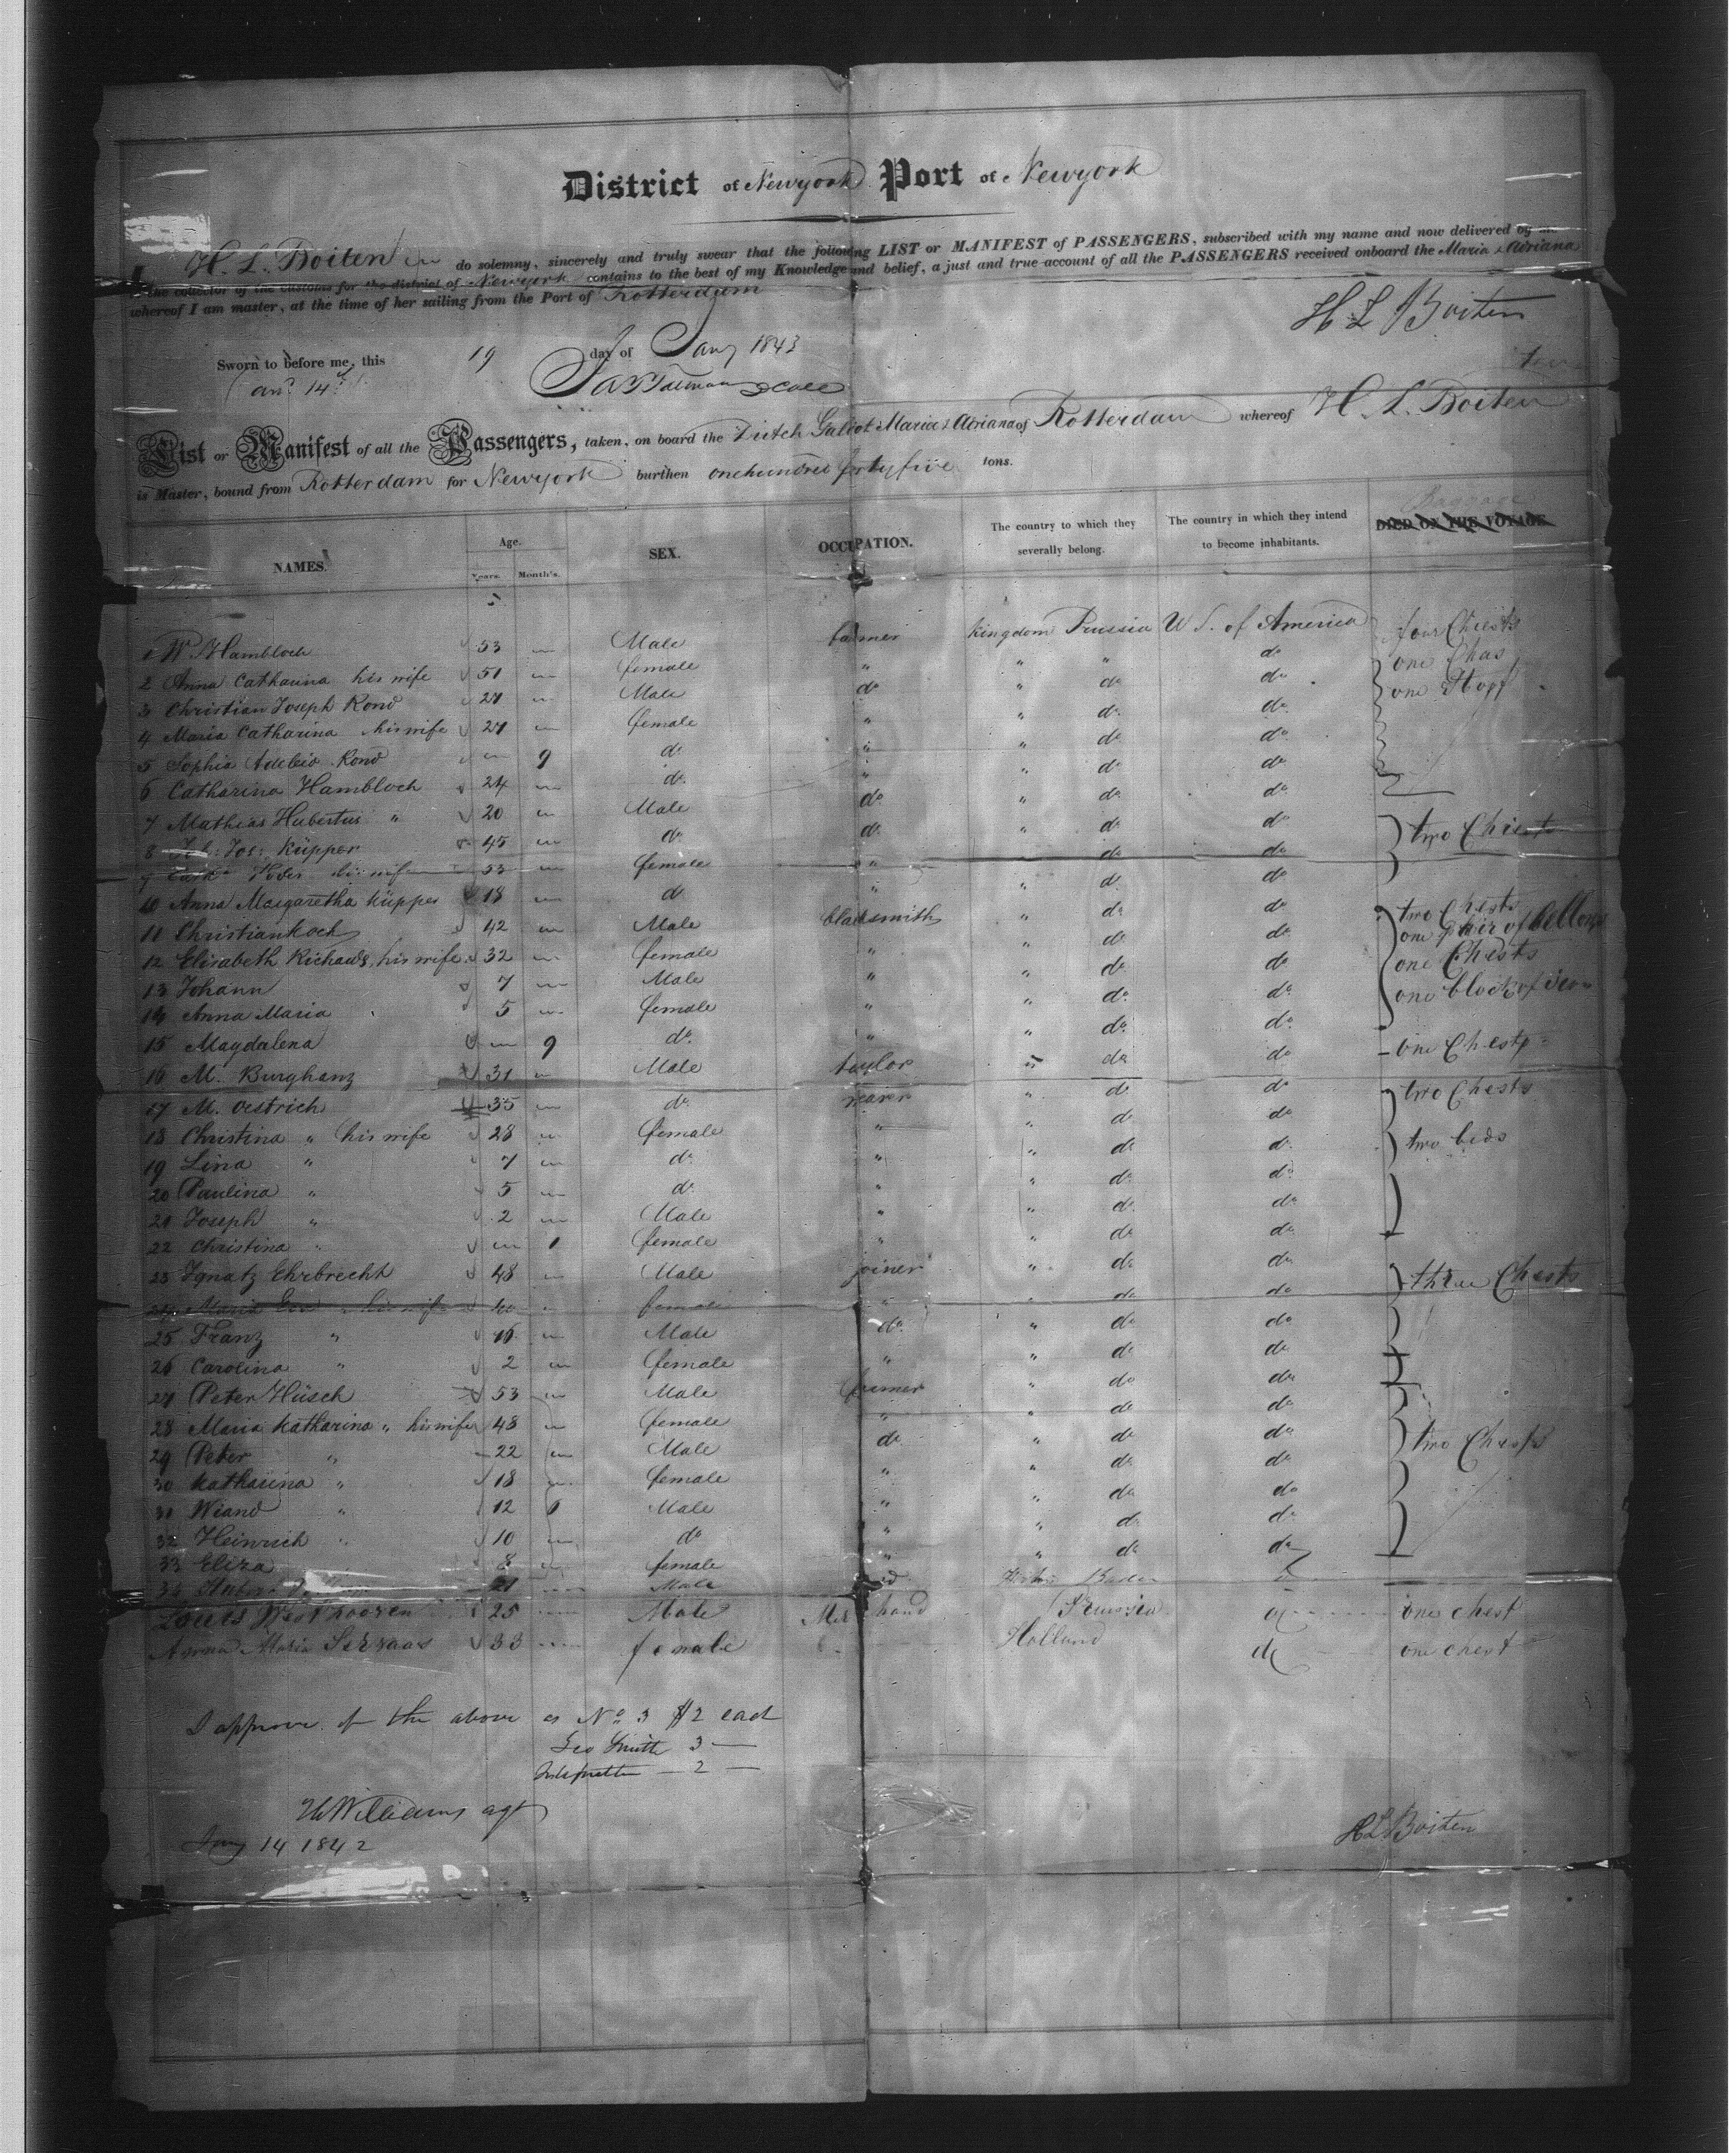 District of Newyork Port of Newyork
I H. L. Boiten do solemny, sincerely and truly swear that the following LIST or MANIFEST of PASSENGERS, subscribed with my name and now delivered by me
to the collector of the customs for the district of Newyork contains to the best of my Knowledge and belief, a just and true account of all the PASSENGERS received onboard the Maria & Adriana
whereof I am master, at the time of her sailing from the Port of Rotterdam
H L Boiten
Sworn to before me, this 19 day of Jany 1843
List or Manifest of all the Passengers, taken, on board the Dutch Galiot Maria & Adriana of Rotterdam whereof H. L. Boiten
is Master, bound from Rotterdam for Newyork burthen onehundred fortyfive tons.
NAMES. Age. Years. Month's. SEX. OCCUPATION. The country to which they severally belong. The country in which they intend to become inhabitants. Baggage DIED ON THE VOYAGE
1 W. Hambloch 53 Male farmer kingdom Prussia U S. of America four Chests
2 Anna Catharina his wife 51 female " " " do one
3 Christian Joseph Rond 27 Male do " do do one
4 Maria Catharina his wife 27 female " " do do
5 Sophia Rond 9 do " " do do
6 Catharina Hambloch 24 do " " do do
7 Mathias Hubertus " 20 Male do " do do
8 Joh: Jos: Küpper 45 do do " do do two Chests
9 his wife 53 female " do do
10 Anna Margaretha Küpper 18 do " " do do
11 Christian Koch 42 Male blacksmith " do do two Chests one pair of bellows
12 Elisabeth Richards his wife 32 female " " do do one Chests
13 Johann 7 Male " " do do one block of iron
14 Anna Maria 5 female " " do do
15 Magdalena 9 do " " do do
16 M. Burghanz 31 Male taylor " do do one Chest
17 M. Oestrich 35 do " do do two Chests
18 Christina " his wife 28 female " " do do two beds
19 Lina " 7 do " " do do
20 Paulina " 5 do " " do do
21 Joseph " 2 Male " " do do
22 Christina " 1 female " " do do
23 Ignatz Ehrbrecht 48 Male joiner " do do three Chests
24 Maria his wife 40 female " " do do
25 Franz " 16 Male do " do do
26 Carolina " 2 female " " do do
27 Peter Hüsch 53 Male farmer " do do
28 Maria Katharina " his wife 48 female " " do do
29 Peter " 22 Male do " do do two Chests
30 Katharina " 18 female " " do do
31 Wiand " 12 6 Male " " do do
32 Heinrich " 10 do " " do do
33 Eliza 8 female " " do do
34 21 Male Baden
Louis Westhoozen 25 Male Prussia one chest
Anna Maria 33 female Holland do one chest
I approve of the above as No 3 $2 each
Geo Smith 3 —
— 2 —
H Williams agt
Jany 14 1842
H L Boiten